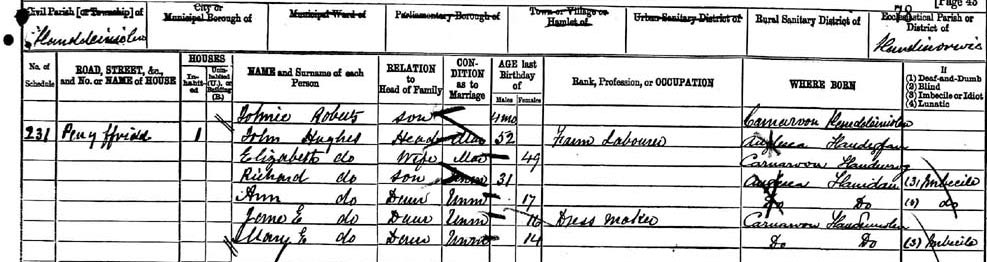 [Page 43
Civil Parish [or Township] of
City or Municipal Borough of
Municipal Ward of
Parliamentary Borough of
Town or Village or Hamlet of
Urban Sanitary District of
Rural Sanitary District of
Ecclesiastical Parish or District of
Llanddeiniolen
Llandinorwic
No. of Schedule
ROAD, STREET, &c., and No. or NAME of HOUSE
HOUSES
Inhabited
Uninhabited (U.), or Building (B.)
NAME and Surname of each Person
RELATION to Head of Family
CONDITION as to Marriage
AGE last Birthday of
Males Females
Rank, Profession, or OCCUPATION
WHERE BORN
If
(1) Deaf-and-Dumb
(2) Blind
(3) Imbecile or Idiot
(4) Lunatic
Johnie Roberts son 4mo Carnarvon Llanddeiniolen
231 Penyffridd 1 John Hughes Head Mar 52 Farm Labourer Anglesea
Elizabeth do Wife Mar 49 Carnarvon Llanwnog
Richard do son Unm 31 Anglesea Llanidan (3) Imbecile
Ann do Daur Unm 17 Do Do do
Jane E do Daur Unm 16 Dress maker Carnarvon Llanddeiniolen
Mary E do Daur Unm 14 Do Do (3) Imbecile